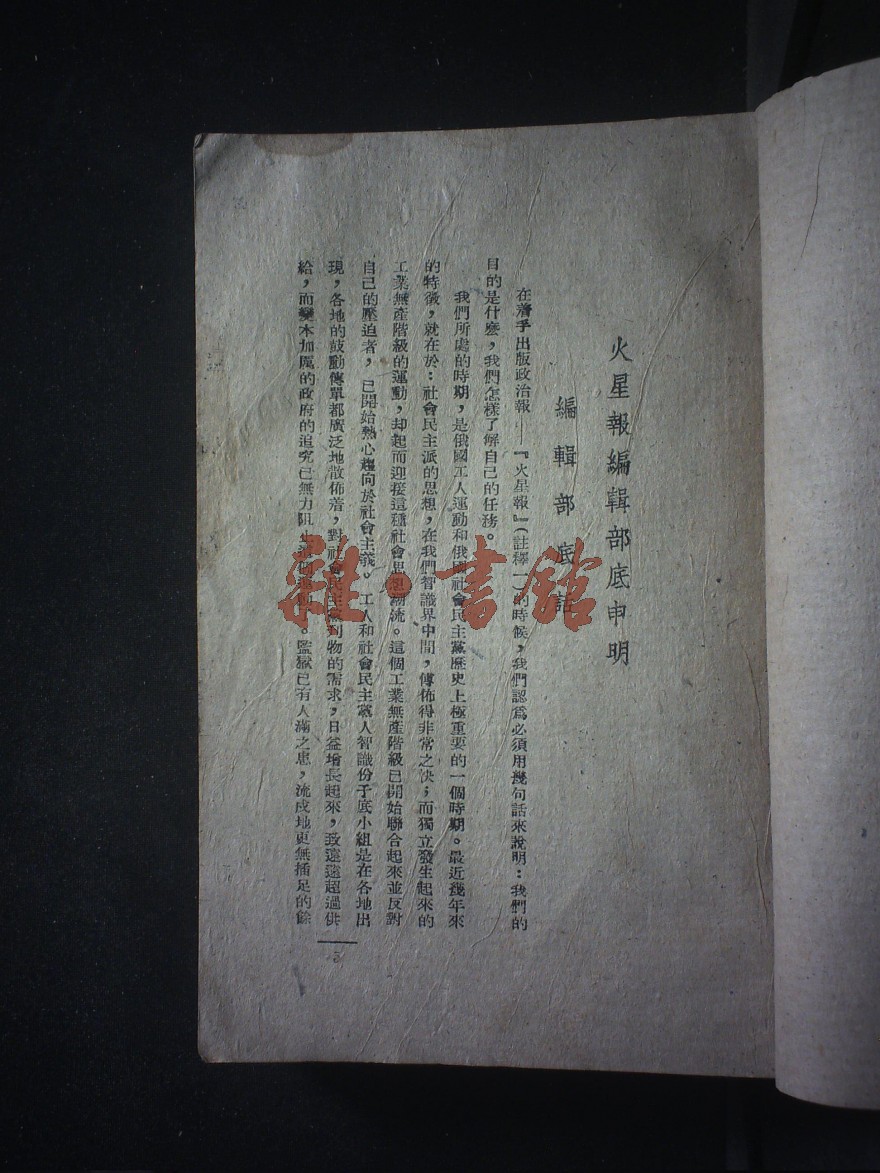 火星報編輯部底申明
編輯部底
在着手出版政治報——『火星報』（註釋一）的時候，我們認爲必須用幾句話來說明：我們的
目的是什麼，我們怎樣了解自己的任務。
我們所處的時期，是俄國工人運動和俄國社會民主黨歷史上極重要的一個時期。最近幾年來
的特徵，就在於：社會民主派的思想，在我們智識界中間，傳佈得非常之快；而獨立發生起來的
工業無產階級的運動，却起而迎接這種社會思想潮流。這個工業無產階級已開始聯合起來並反對
自己的壓迫者，已開始熱心趨向於社會主義。工人和社會民主黨人智識份子底小組是在各地出
現，各地的鼓動傳單都廣泛地散佈着，對社會民主黨刊物的需求，日益增長起來，致遠遠超過供
給，而變本加厲的政府的追究已無力阻止這個運動。監獄已有人滿之患，流戍地更無插足的餘
雜·書館